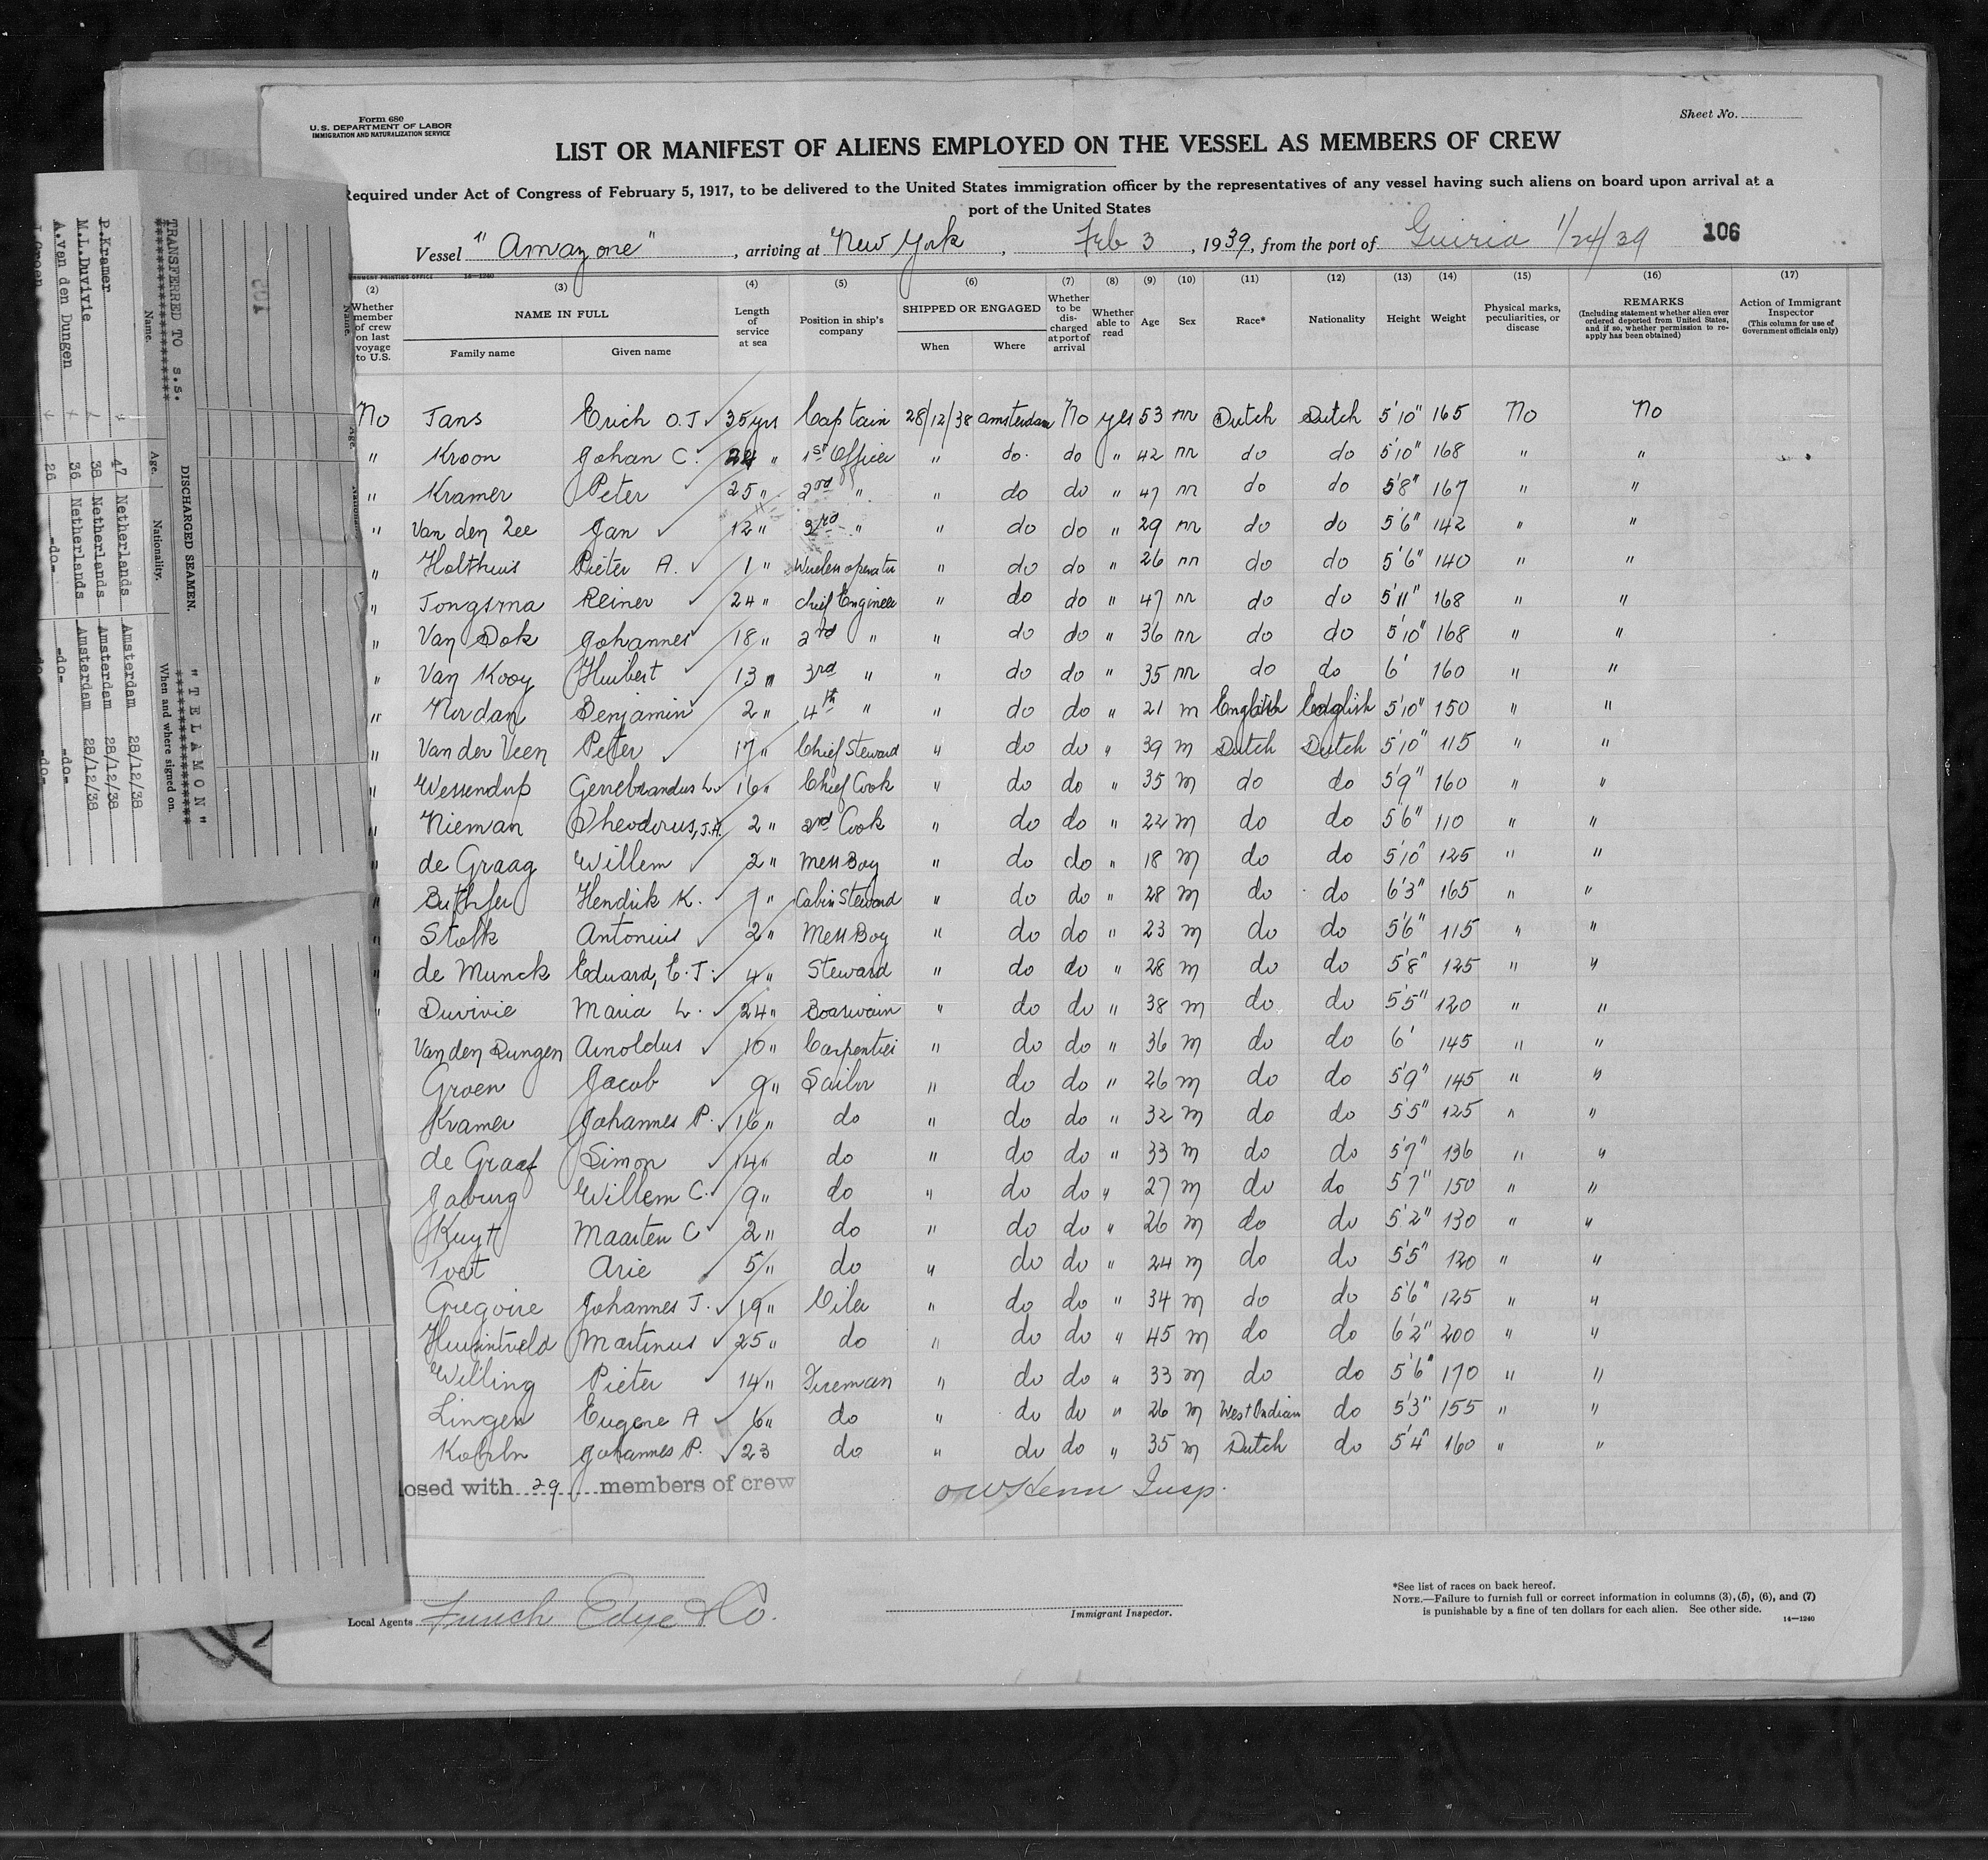 Form 680
U.S. DEPARTMENT OF LABOR
IMMIGRATION AND NATURALIZATION SERVICE
Sheet No.
LIST OR MANIFEST OF ALIENS EMPLOYED ON THE VESSEL AS MEMBERS OF CREW
Required under Act of Congress of February 5, 1917, to be delivered to the United States immigration officer by the representatives of any vessel having such aliens on board upon arrival at a
port of the United States
Vessel "Amazone", arriving at New York, Feb 3, 1939, from the port of Guiria 1/24/39 106
(2) Whether member of crew on last voyage to U.S. (3) NAME IN FULL Family name Given name (4) Length of service at sea (5) Position in ship's company (6) SHIPPED OR ENGAGED When Where (7) Whether to be discharged at port of arrival (8) Whether able to read (9) Age (10) Sex (11) Race* (12) Nationality (13) Height (14) Weight (15) Physical marks, peculiarities, or disease (16) REMARKS (Including statement whether alien ever ordered deported from United States, and if so, whether permission to re-apply has been obtained) (17) Action of Immigrant Inspector (This column for use of Government officials only)
No Jans Erich O.J. 35 yrs Captain 28/12/38 amsterdam No yes 53 m Dutch Dutch 5'10" 165 No No
" Kroon Johan C. 24 " 1st Officer " do. do " 42 m do do 5'10" 168 " "
" Kramer Peter 25 " 2nd " " do do " 47 m do do 5'8" 167 " "
" Van den Zee Jan 12 " 3rd " " do do " 29 m do do 5'6" 142 " "
" Holthuis Pieter A. 1 " Wireless operator " do do " 26 m do do 5'6" 140 " "
" Jongsma Reiner 24 " Chief Engineer " do do " 47 m do do 5'11" 168 " "
" Van Dok Johannes 18 " 2nd " " do do " 36 m do do 5'10" 168 " "
" Van Kooy Huibert 13 " 3rd " " do do " 35 m do do 6' 160 " "
" Nordan Benjamin 2 " 4th " " do do " 21 m English English 5'10" 150 " "
" Van der Veen Peter 17 " Chief Steward " do do " 39 m Dutch Dutch 5'10" 115 " "
" Wessendorp Gerrebrandus L. 16 " Chief Cook " do do " 35 m do do 5'9" 160 " "
" Nieman Theodorus, J.H. 2 " 2nd Cook " do do " 22 m do do 5'6" 110 " "
" de Graag Willem 2 " Mess Boy " do do " 18 m do do 5'10" 125 " "
" Hendrik K. 7 " Cabin Steward " do do " 28 m do do 6'3" 165 " "
" Stolk Antonius 2 " Mess Boy " do do " 23 m do do 5'6" 115 " "
" de Munck Eduard, E.J. 4 " Steward " do do " 28 m do do 5'8" 125 " "
" Duvivie Maria L. 24 " Boaswain " do do " 38 m do do 5'5" 120 " "
Van den Dungen Arnoldus 10 " Carpenter " do do " 36 m do do 6' 145 " "
Groen Jacob 9 " Sailor " do do " 26 m do do 5'9" 145 " "
Kramer Johannes P. 16 " do " do do " 32 m do do 5'5" 125 " "
de Graaf Simon 14 " do " do do " 33 m do do 5'7" 136 " "
Joburg Willem C. 9 " do " do do " 27 m do do 5'7" 150 " "
Kuyt Maarten C 2 " do " do do " 26 m do do 5'2" 130 " "
Arie 5 " do " do do " 24 m do do 5'5" 120 " "
Gregoire Johannes J. 19 " Oiler " do do " 34 m do do 5'6" 125 " "
Huisintveld Martinus 25 " do " do do " 45 m do do 6'2" 200 " "
Willing Pieter 14 " Fireman " do do " 33 m do do 5'6" 170 " "
Lingen Eugene A 6 " do " do do " 26 m West Indian do 5'3" 155 " "
Johannes P. 23 do " do do " 35 m Dutch do 5'4" 160 " "
losed with 29 members of crew
Insp.
Local Agents Funch Edye & Co.
Immigrant Inspector.
*See list of races on back hereof.
NOTE.—Failure to furnish full or correct information in columns (3), (5), (6), and (7)
is punishable by a fine of ten dollars for each alien. See other side.
14—1240
TRANSFERRED TO s.s. "TELAMON"
DISCHARGED SEAMEN.
Name. Age. Nationality. When and where signed on.
P.Kramer 47 Netherlands Amsterdam 28/12/38
M.L.Duvivie 38 Netherlands Amsterdam 28/12/38
A.van den Dungen 36 Netherlands Amsterdam 28/12/38
J.Groen 26 -do- -do- -do-